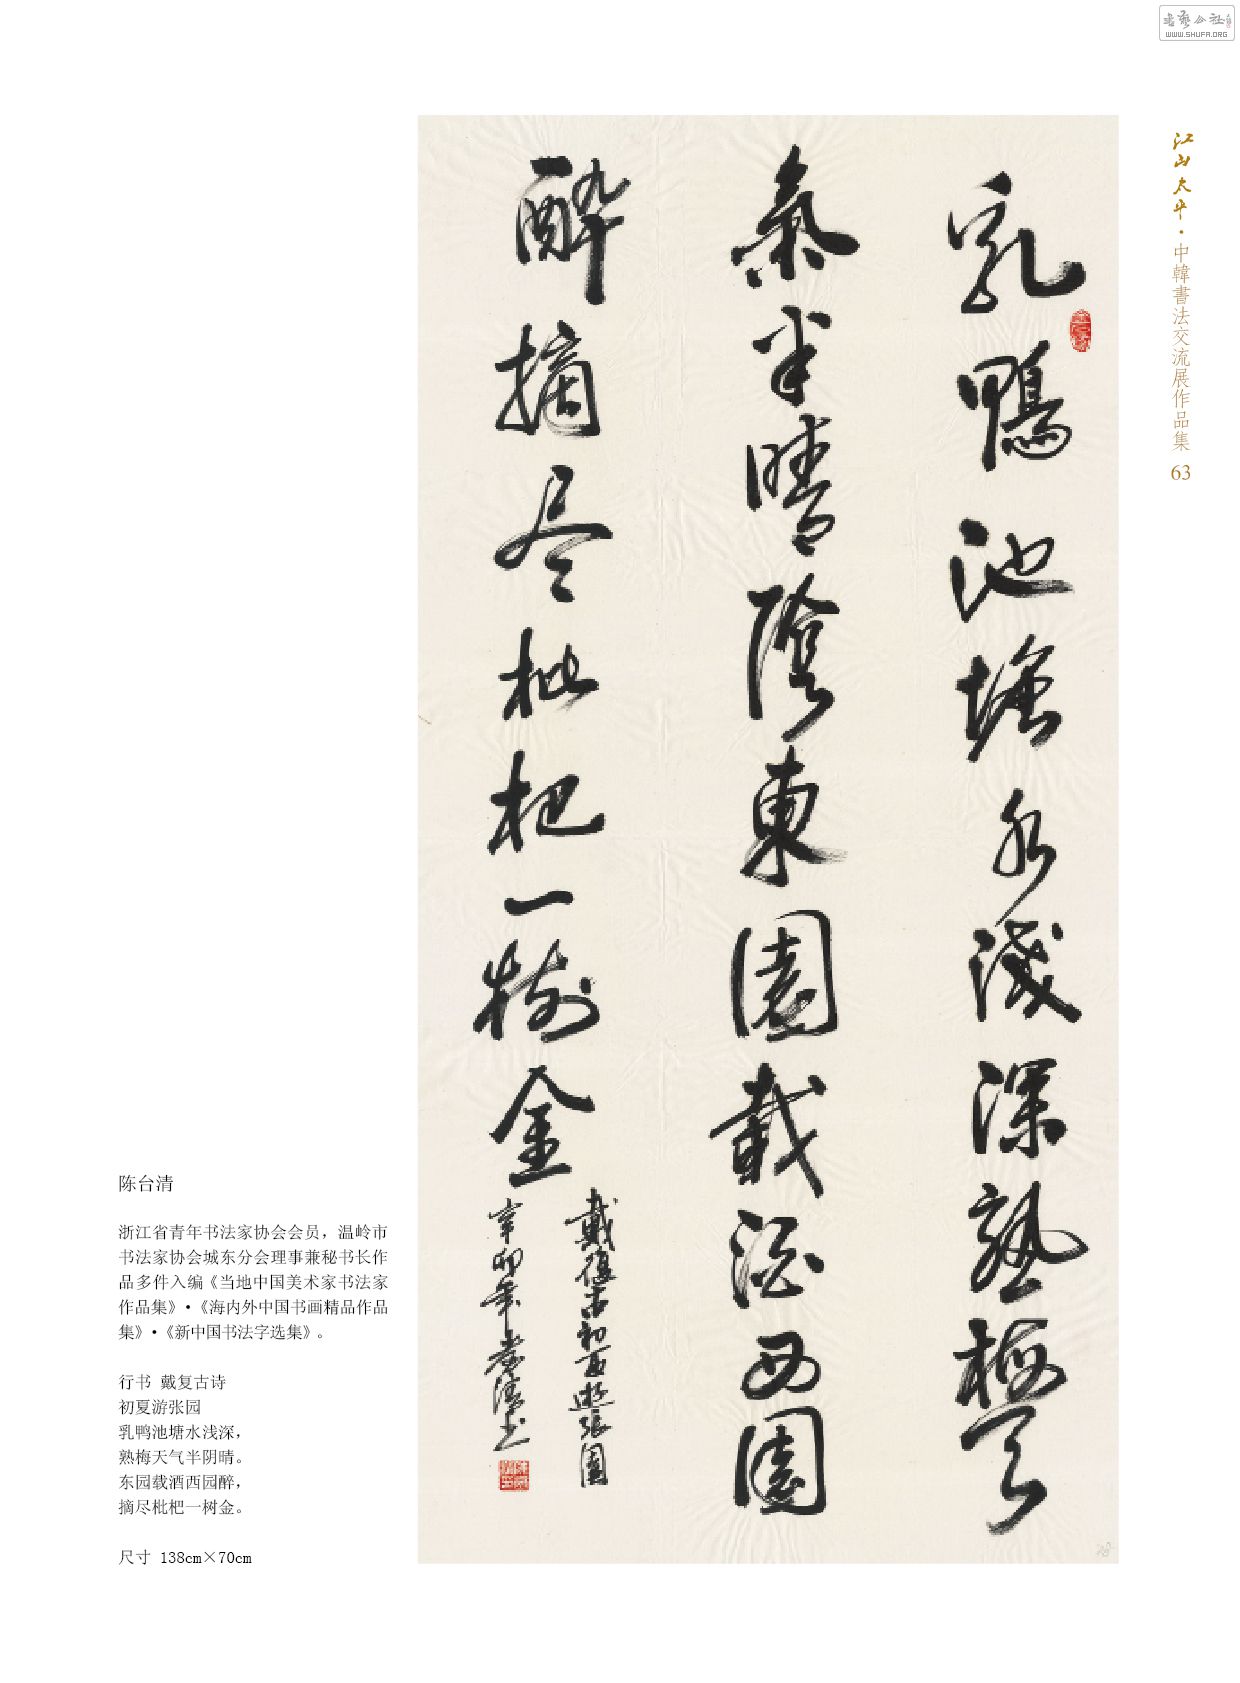 书艺公社
WWW.SHUFA.ORG
江山太平·中韓書法交流展作品集 63
乳鴨池塘水淺深熟梅天
氣半晴陰東園載酒西園
醉摘尽枇杷一樹金
戴復古初夏遊張園
辛卯年台清书
陈台清
浙江省青年书法家协会会员，温岭市
书法家协会城东分会理事兼秘书长作
品多件入编《当地中国美术家书法家
作品集》·《海内外中国书画精品作品
集》·《新中国书法字选集》。
行书 戴复古诗
初夏游张园
乳鸭池塘水浅深，
熟梅天气半阴晴。
东园载酒西园醉，
摘尽枇杷一树金。
尺寸 138cm×70cm